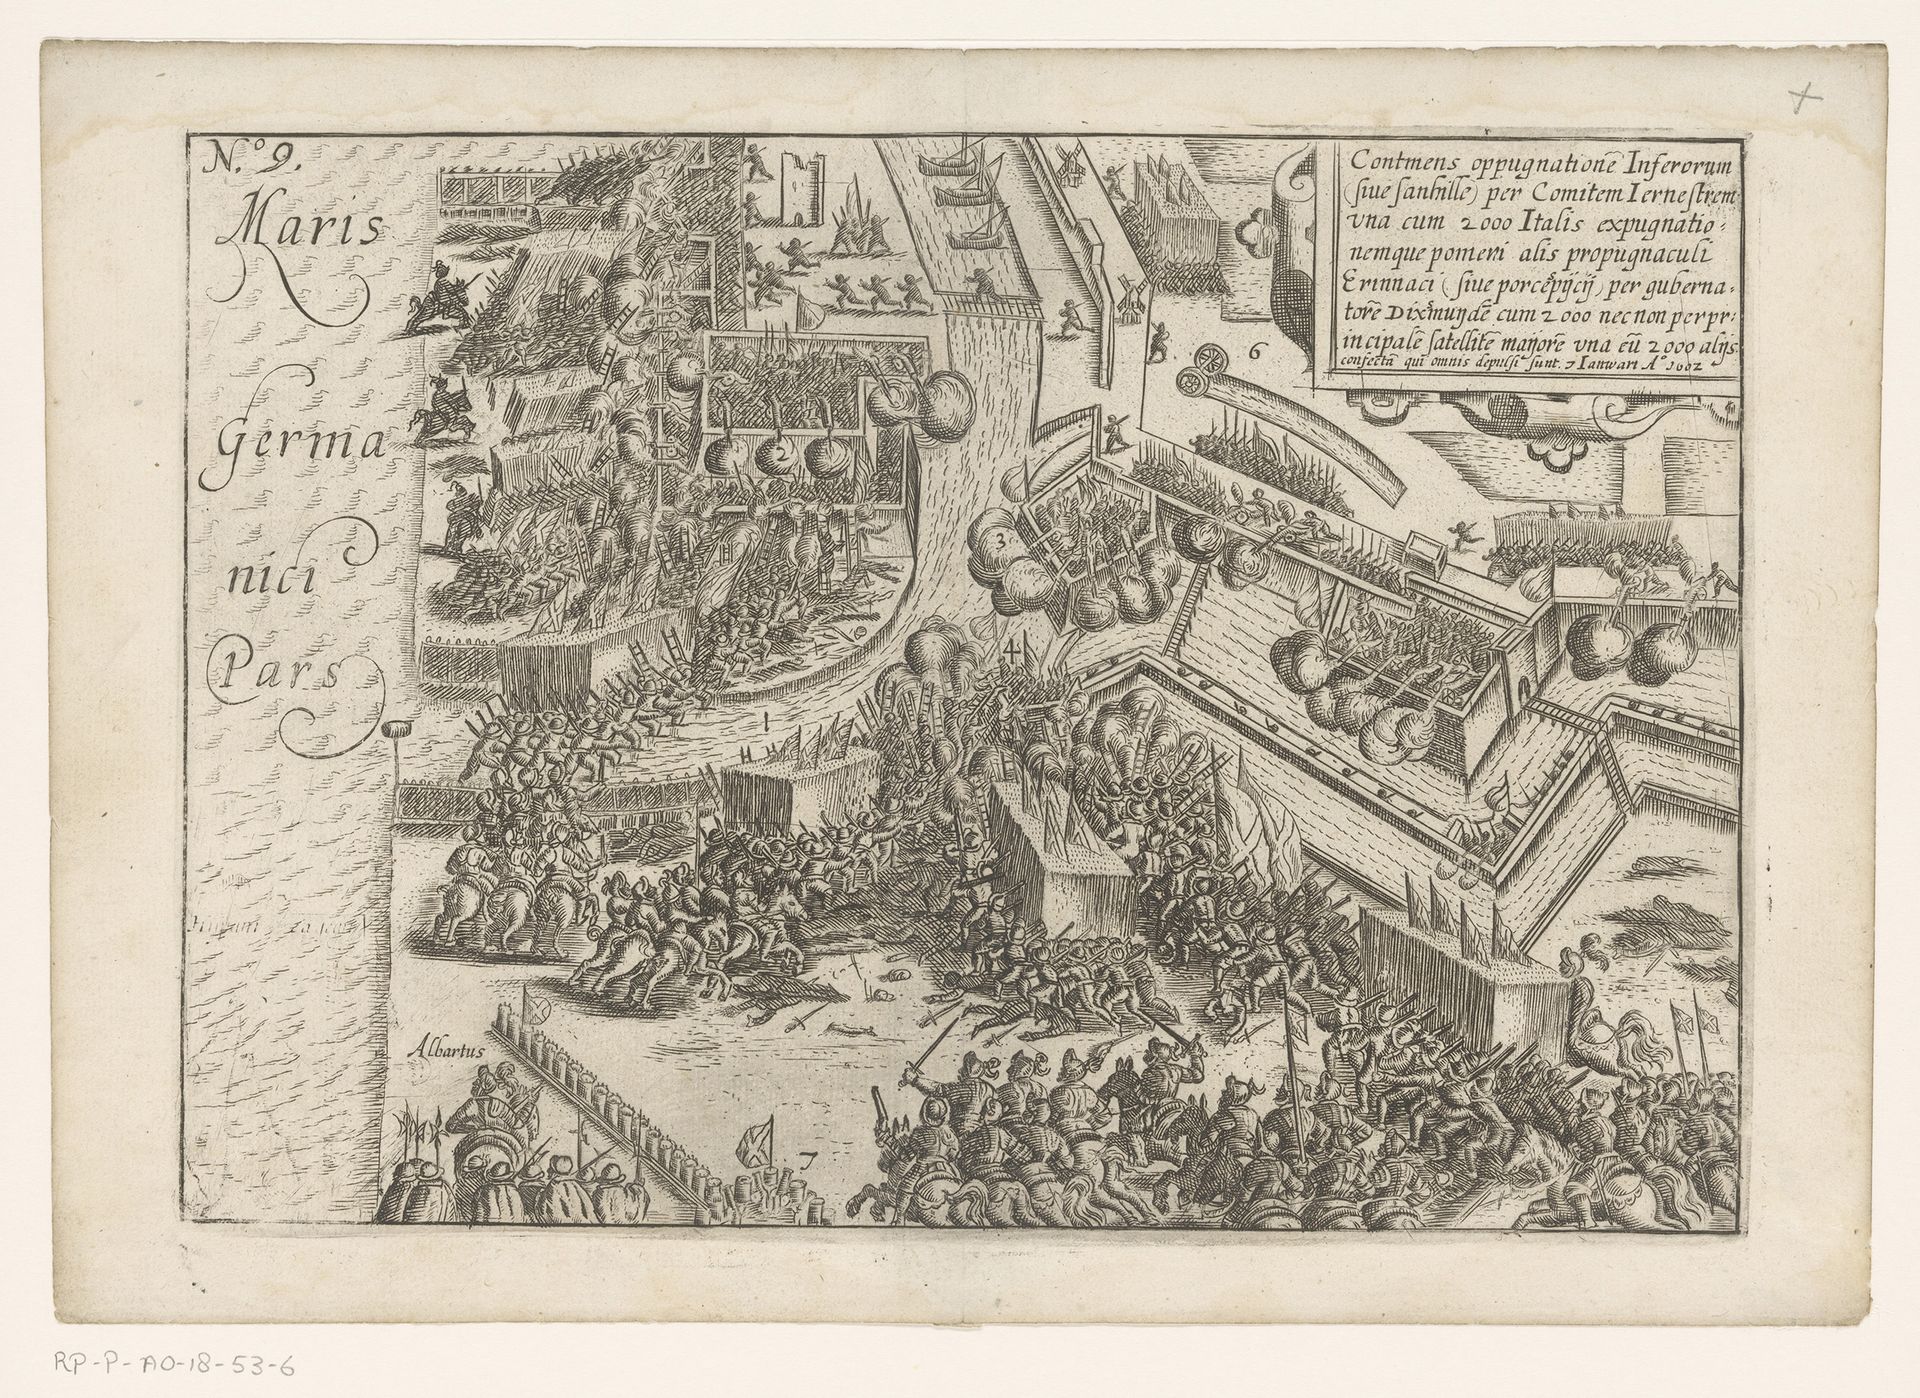 N.º 9.
Maris
Germa
nici
Pars
Contmens oppugnationẽ Inferorum
(siue santhille) per Comitem Iernestrem
vna cum 2000 Italis expugnatio:
nemque pomeri alis propugnaculi
Erinnaci (siue porcẽpÿcÿ) per guberna:
torẽ Dixmuÿdẽ cum 2000 nec non per pr:
incipalẽ satellitẽ maÿorẽ vna cũ 2000 alÿs
confectã qui omnis depulsi sunt. 7 Ianwari Aº 1602
6
2
3
4
1
Albartus
7
+
RP-P-AO-18-53-6